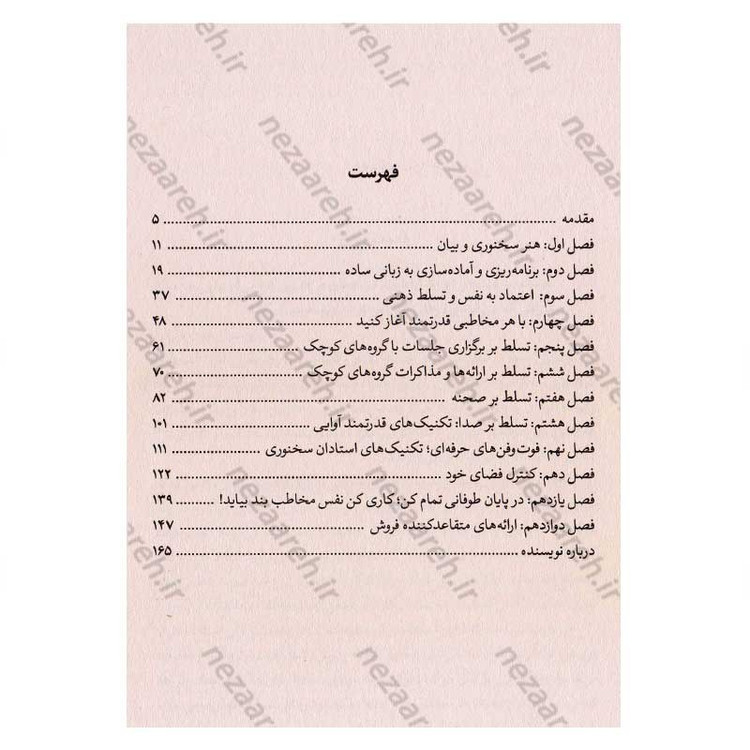 فهرست
مقدمه ........ ۵
فصل اول: هنر سخنوری و بیان ........ ۱۱
فصل دوم: برنامه‌ریزی و آماده‌سازی به زبانی ساده ........ ۱۹
فصل سوم: اعتماد به نفس و تسلط ذهنی ........ ۳۷
فصل چهارم: با هر مخاطبی قدرتمند آغاز کنید ........ ۴۸
فصل پنجم: تسلط بر برگزاری جلسات با گروه‌های کوچک ........ ۶۱
فصل ششم: تسلط بر ارائه‌ها و مذاکرات گروه‌های کوچک ........ ۷۰
فصل هفتم: تسلط بر صحنه ........ ۸۲
فصل هشتم: تسلط بر صدا: تکنیک‌های قدرتمند آوایی ........ ۱۰۱
فصل نهم: فوت‌وفن‌های حرفه‌ای؛ تکنیک‌های استادان سخنوری ........ ۱۱۱
فصل دهم: کنترل فضای خود ........ ۱۲۲
فصل یازدهم: در پایان طوفانی تمام کن؛ کاری کن نفس مخاطب بند بیاید! ........ ۱۳۹
فصل دوازدهم: ارائه‌های متقاعدکننده فروش ........ ۱۴۷
درباره نویسنده ........ ۱۶۵
nezaareh.ir